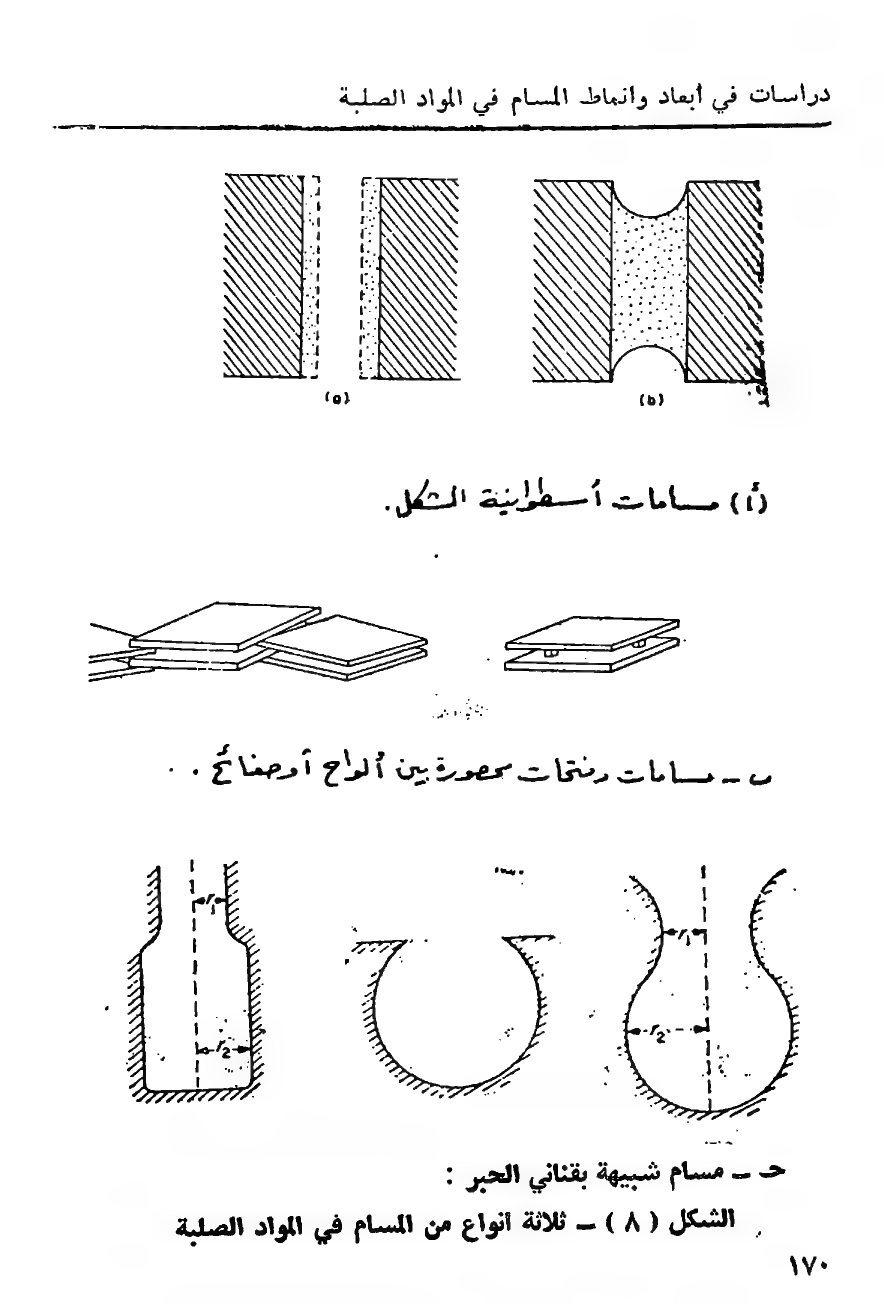 دراسات في أبعاد وانماط المسام في المواد الصلبة
(a)
(b)
(أ) مسامات أسطوانية الشكل.
ب – مسامات وفتحات محصورة بين ألواح أو صفائح .
r1
r1
r2
r2
حـ – مسام شبيهة بقناني الحبر :
الشكل ( ٨ ) – ثلاثة انواع من المسام في المواد الصلبة
١٧٠